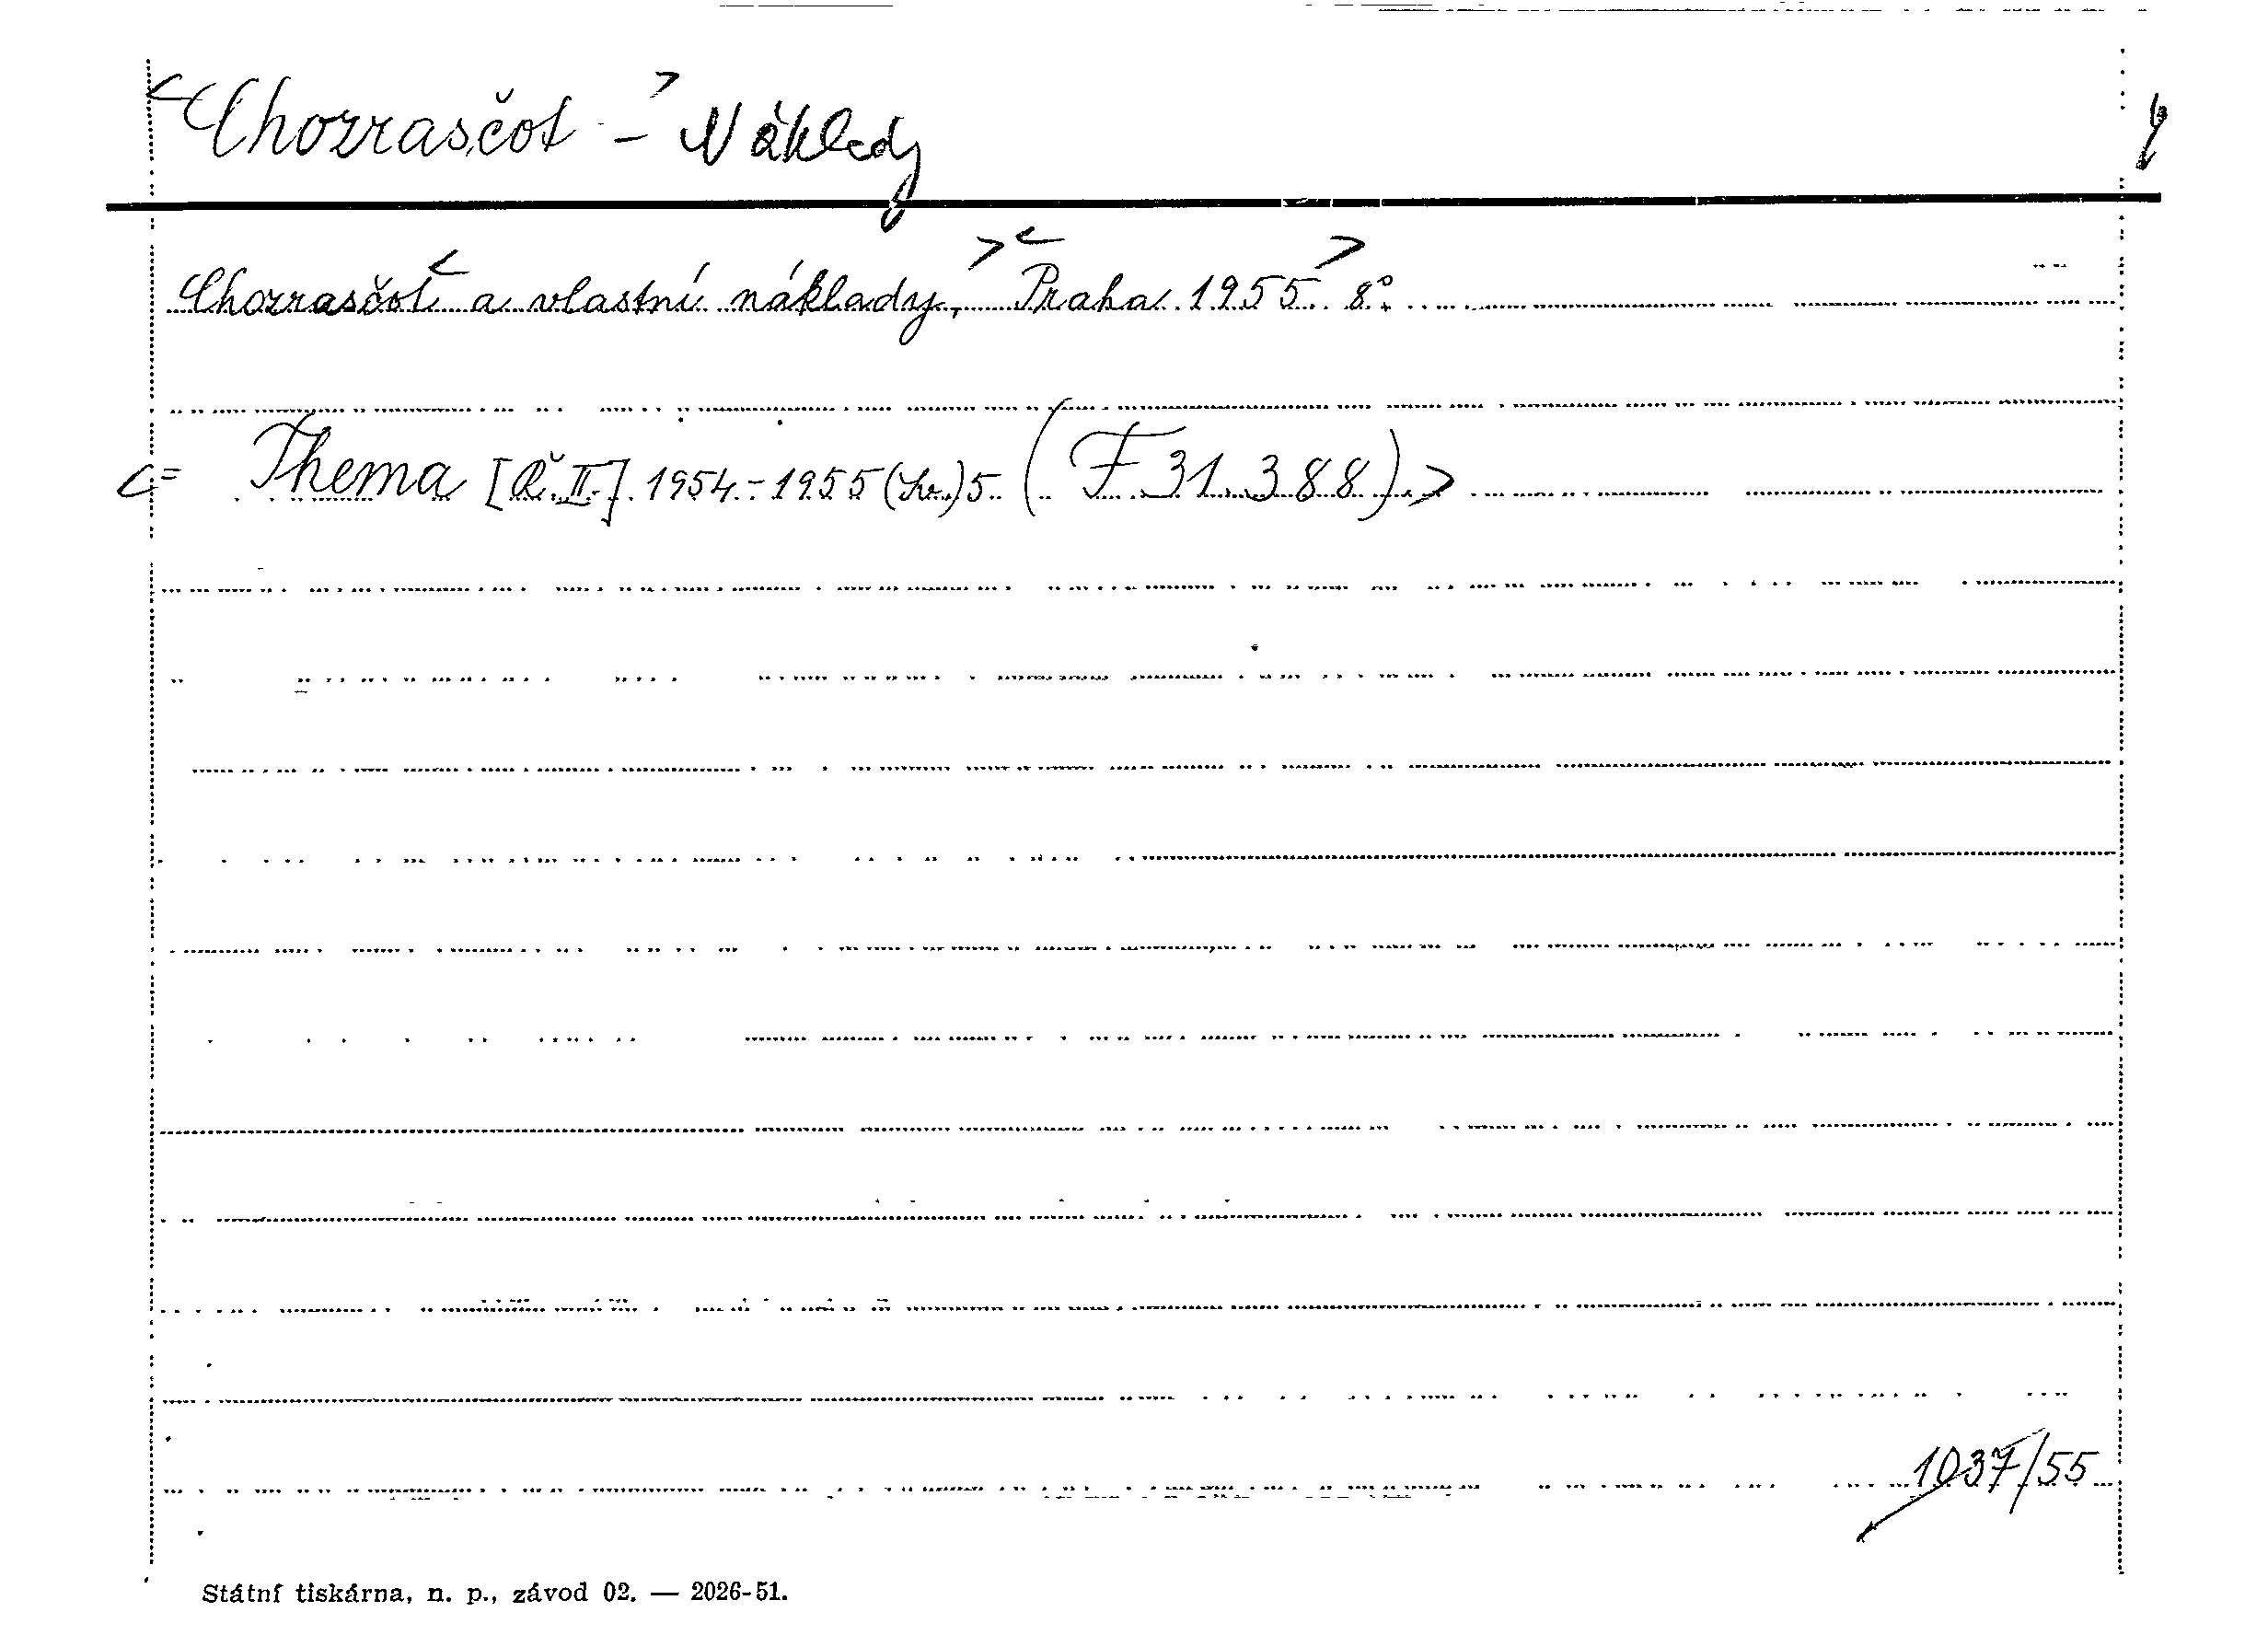 <Chozrasčot> - Náklady
Chozrasčot <a vlastní náklady,> <Praha 1955> 8°.
<= Thema [Ř. II.] 1954-1955 (sv.) 5 (F 31.388)>
1037/55
Státní tiskárna, n. p., závod 02. — 2026-51.